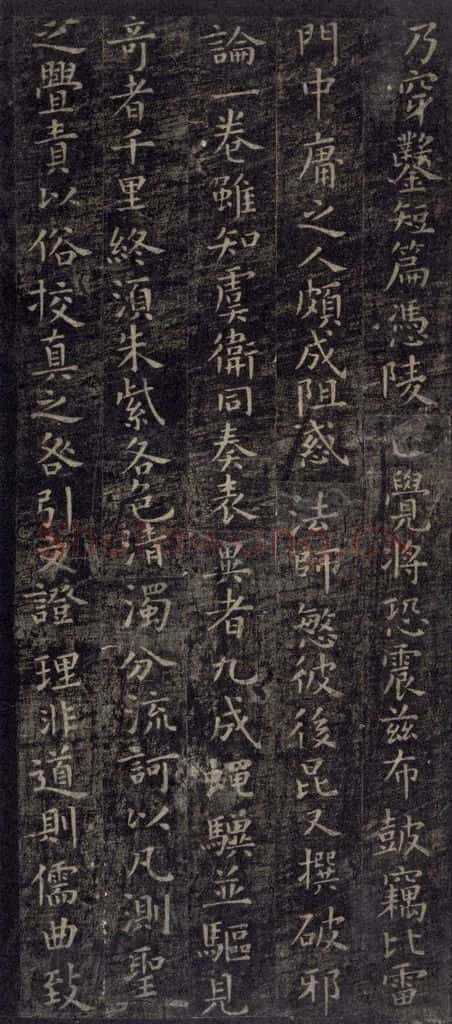 乃穿鑿短篇憑陵已覺將恐震茲布鼓竊比雷
門中庸之人頗成阻惑法師愍彼後昆又撰破邪
論一卷雖知虞衛同奏表異者九成蠅驥並驅見
奇者千里終須朱紫各色清濁分流訶以凡測聖
之舋責以俗挍真之咎引文證理非道則儒曲致